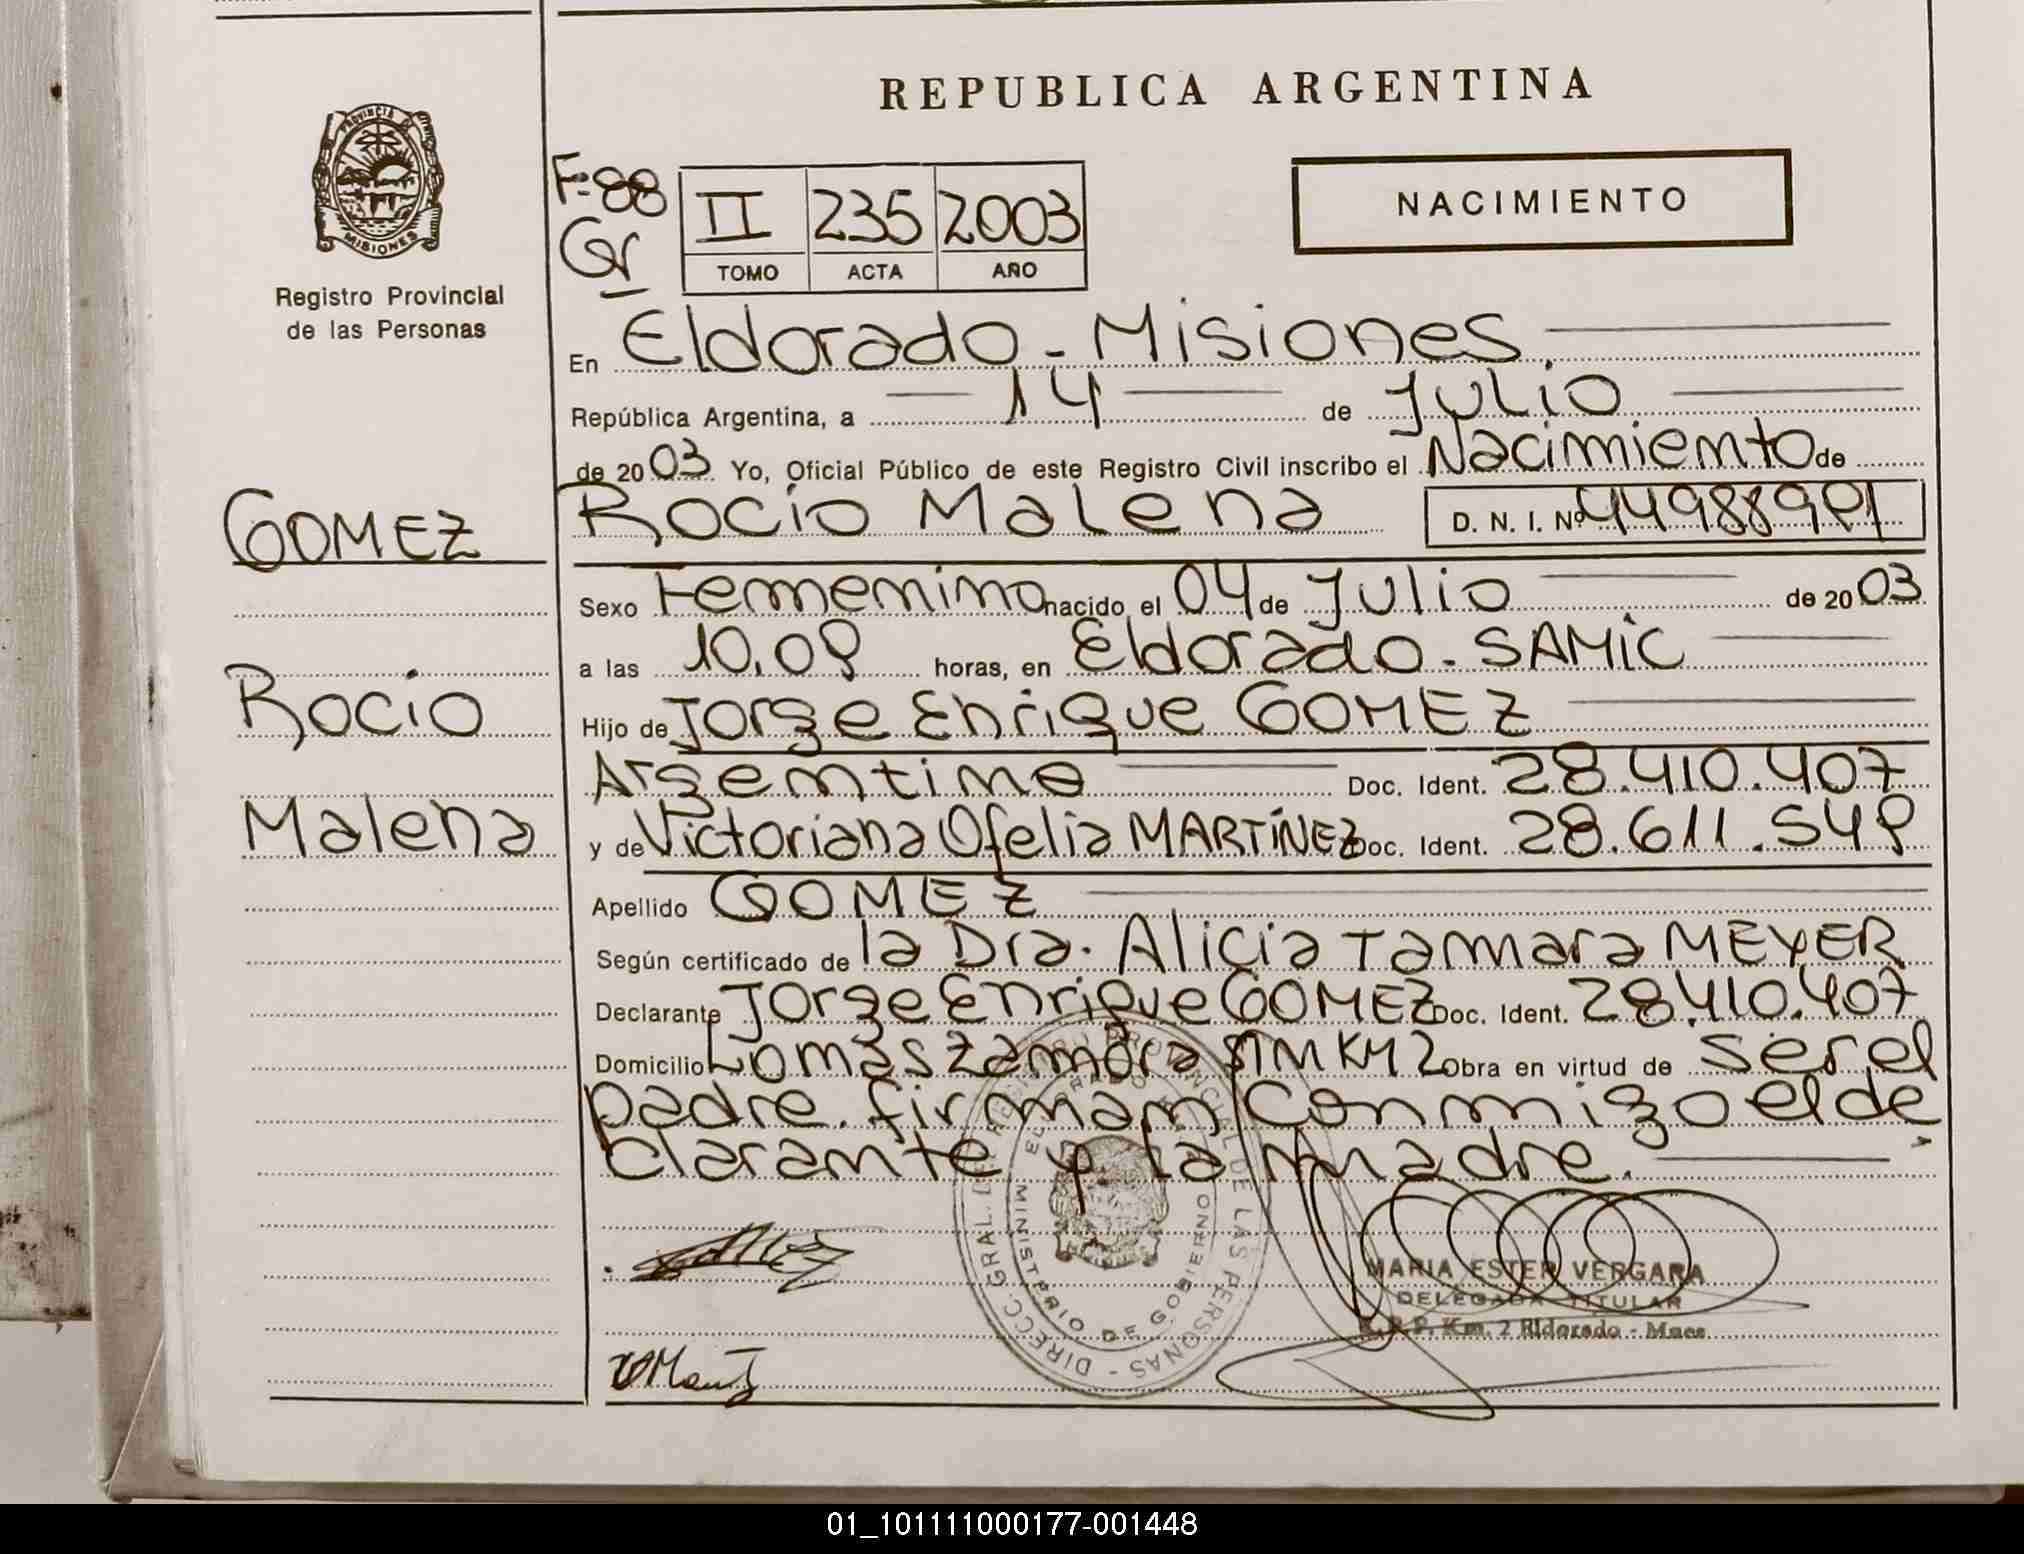 REPUBLICA ARGENTINA
PROVINCIA DE MISIONES
Registro Provincial
de las Personas
F=88
II 235 2003
TOMO ACTA AÑO
NACIMIENTO
En Eldorado - Misiones.
República Argentina, a 14 de Julio
de 2003 Yo, Oficial Público de este Registro Civil inscribo el Nacimiento de
GOMEZ
Rocio Malena D. N. I. Nº 44988991
Sexo Femenino nacido el 04 de Julio de 2003
a las 10.09 horas, en Eldorado - SAMIC
Rocio
Hijo de Jorge Enrique GOMEZ
Argentino Doc. Ident. 28.410.407
Malena
y de Victoriana Ofelia MARTÍNEZ Doc. Ident. 28.611.549
Apellido GOMEZ
Según certificado de la Dra. Alicia Tamara MEYER
Declarante Jorge Enrique GOMEZ Doc. Ident. 28.410.407
Domicilio Lomas Zamora KM 2 Obra en virtud de ser el
padre. firman conmigo el de
clarante y la madre.
DIRECC. GRAL. DEL REGISTRO PROVINCIAL DE LAS PERSONAS
MINISTERIO DE GOBIERNO
MARIA ESTER VERGARA
DELEGADA TITULAR
R. P. P. Km. 2 Eldorado - Mnes.
01_101111000177-001448